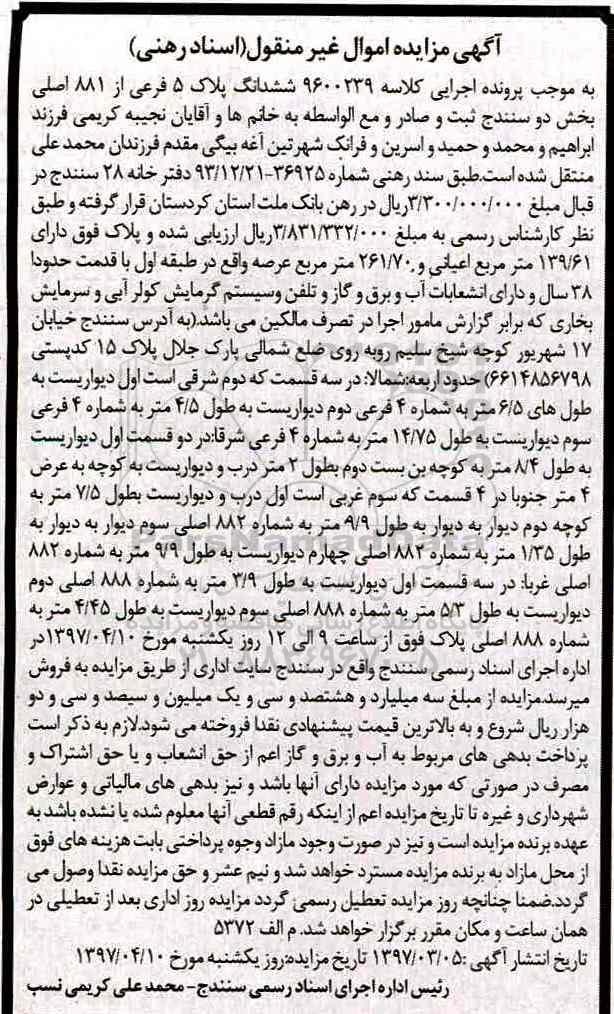 آگهی مزایده اموال غیر منقول(اسناد رهنی)
به موجب پرونده اجرایی کلاسه ۹۶۰۰۲۳۹ ششدانگ پلاک ۵ فرعی از ۸۸۱ اصلی
بخش دو سنندج ثبت و صادر و مع الواسطه به خانم ها و آقایان نجیبه کریمی فرزند
ابراهیم و محمد و حمید و اسرین و فرانک شهرتین آغه بیگی مقدم فرزندان محمد علی
منتقل شده است.طبق سند رهنی شماره ۳۶۹۲۵-۹۳/۱۲/۲۱ دفتر خانه ۲۸ سنندج در
قبال مبلغ ۳/۳۰۰/۰۰۰/۰۰۰ریال در رهن بانک ملت استان کردستان قرار گرفته و طبق
نظر کارشناس رسمی به مبلغ ۳/۸۳۱/۳۳۲/۰۰۰ریال ارزیابی شده و پلاک فوق دارای
۱۳۹/۶۱ متر مربع اعیانی و ۲۶۱/۷۰ متر مربع عرصه واقع در طبقه اول با قدمت حدودا
۳۸ سال و دارای انشعابات آب و برق و گاز و تلفن وسیستم گرمایش کولر آبی و سرمایش
بخاری که برابر گزارش مامور اجرا در تصرف مالکین می باشد.(به آدرس سنندج خیابان
۱۷ شهریور کوچه شیخ سلیم روبه روی ضلع شمالی پارک جلال پلاک ۱۵ کدپستی
۶۶۱۴۸۵۶۷۹۸) حدود اربعه:شمالا: در سه قسمت که دوم شرقی است اول دیواریست به
طول های ۶/۵ متر به شماره ۴ فرعی دوم دیواریست به طول ۴/۵ متر به شماره ۴ فرعی
سوم دیواریست به طول ۱۴/۷۵ متر به شماره ۴ فرعی شرقا:در دو قسمت اول دیواریست
به طول ۸/۴ متر به کوچه بن بست دوم بطول ۲ متر درب و دیواریست به کوچه به عرض
۴ متر جنوبا در ۴ قسمت که سوم غربی است اول درب و دیواریست بطول ۷/۵ متر به
کوچه دوم دیوار به دیوار به طول ۹/۹ متر به شماره ۸۸۲ اصلی سوم دیوار به دیوار به
طول ۱/۳۵ متر به شماره ۸۸۲ اصلی چهارم دیواریست به طول ۹/۹ متر به شماره ۸۸۲
اصلی غربا: در سه قسمت اول دیواریست به طول ۳/۹ متر به شماره ۸۸۸ اصلی دوم
دیواریست به طول ۵/۳ متر به شماره ۸۸۸ اصلی سوم دیواریست به طول ۴/۴۵ متر به
شماره ۸۸۸ اصلی پلاک فوق از ساعت ۹ الی ۱۲ روز یکشنبه مورخ ۱۳۹۷/۰۴/۱۰در
اداره اجرای اسناد رسمی سنندج واقع در سنندج سایت اداری از طریق مزایده به فروش
میرسد.مزایده از مبلغ سه میلیارد و هشتصد و سی و یک میلیون و سیصد و سی و دو
هزار ریال شروع و به بالاترین قیمت پیشنهادی نقدا فروخته می شود.لازم به ذکر است
پرداخت بدهی های مربوط به آب و برق و گاز اعم از حق انشعاب و یا حق اشتراک و
مصرف در صورتی که مورد مزایده دارای آنها باشد و نیز بدهی های مالیاتی و عوارض
شهرداری و غیره تا تاریخ مزایده اعم از اینکه رقم قطعی آنها معلوم شده یا نشده باشد به
عهده برنده مزایده است و نیز در صورت وجود مازاد وجوه پرداختی بابت هزینه های فوق
از محل مازاد به برنده مزایده مسترد خواهد شد و نیم عشر و حق مزایده نقدا وصول می
گردد.ضمنا چنانچه روز مزایده تعطیل رسمی گردد مزایده روز اداری بعد از تعطیلی در
همان ساعت و مکان مقرر برگزار خواهد شد. م الف ۵۳۷۲
تاریخ انتشار آگهی :۱۳۹۷/۰۳/۰۵ تاریخ مزایده:روز یکشنبه مورخ ۱۳۹۷/۰۴/۱۰
رئیس اداره اجرای اسناد رسمی سنندج- محمد علی کریمی نسب
ParsNamadData
پایگاه اطلاع رسانی مناقصه و مزایده